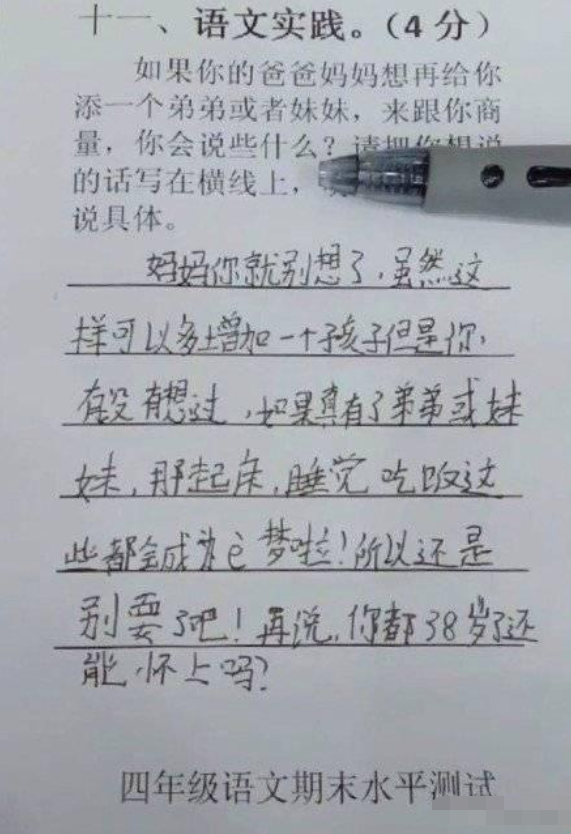 十一、语文实践。（4分）
如果你的爸爸妈妈想再给你
添一个弟弟或者妹妹，来跟你商
量，你会说些什么？请把你想说
的话写在横线上，
说具体。
妈妈你就别想了，虽然这
样可以多增加一个孩子但是你，
有没有想过，如果真有了弟弟或妹
妹，那起床，睡觉吃饭这
些都会成为è梦啦！所以还是
别要了吧！再说，你都38岁了还
能怀上吗？
四年级语文期末水平测试